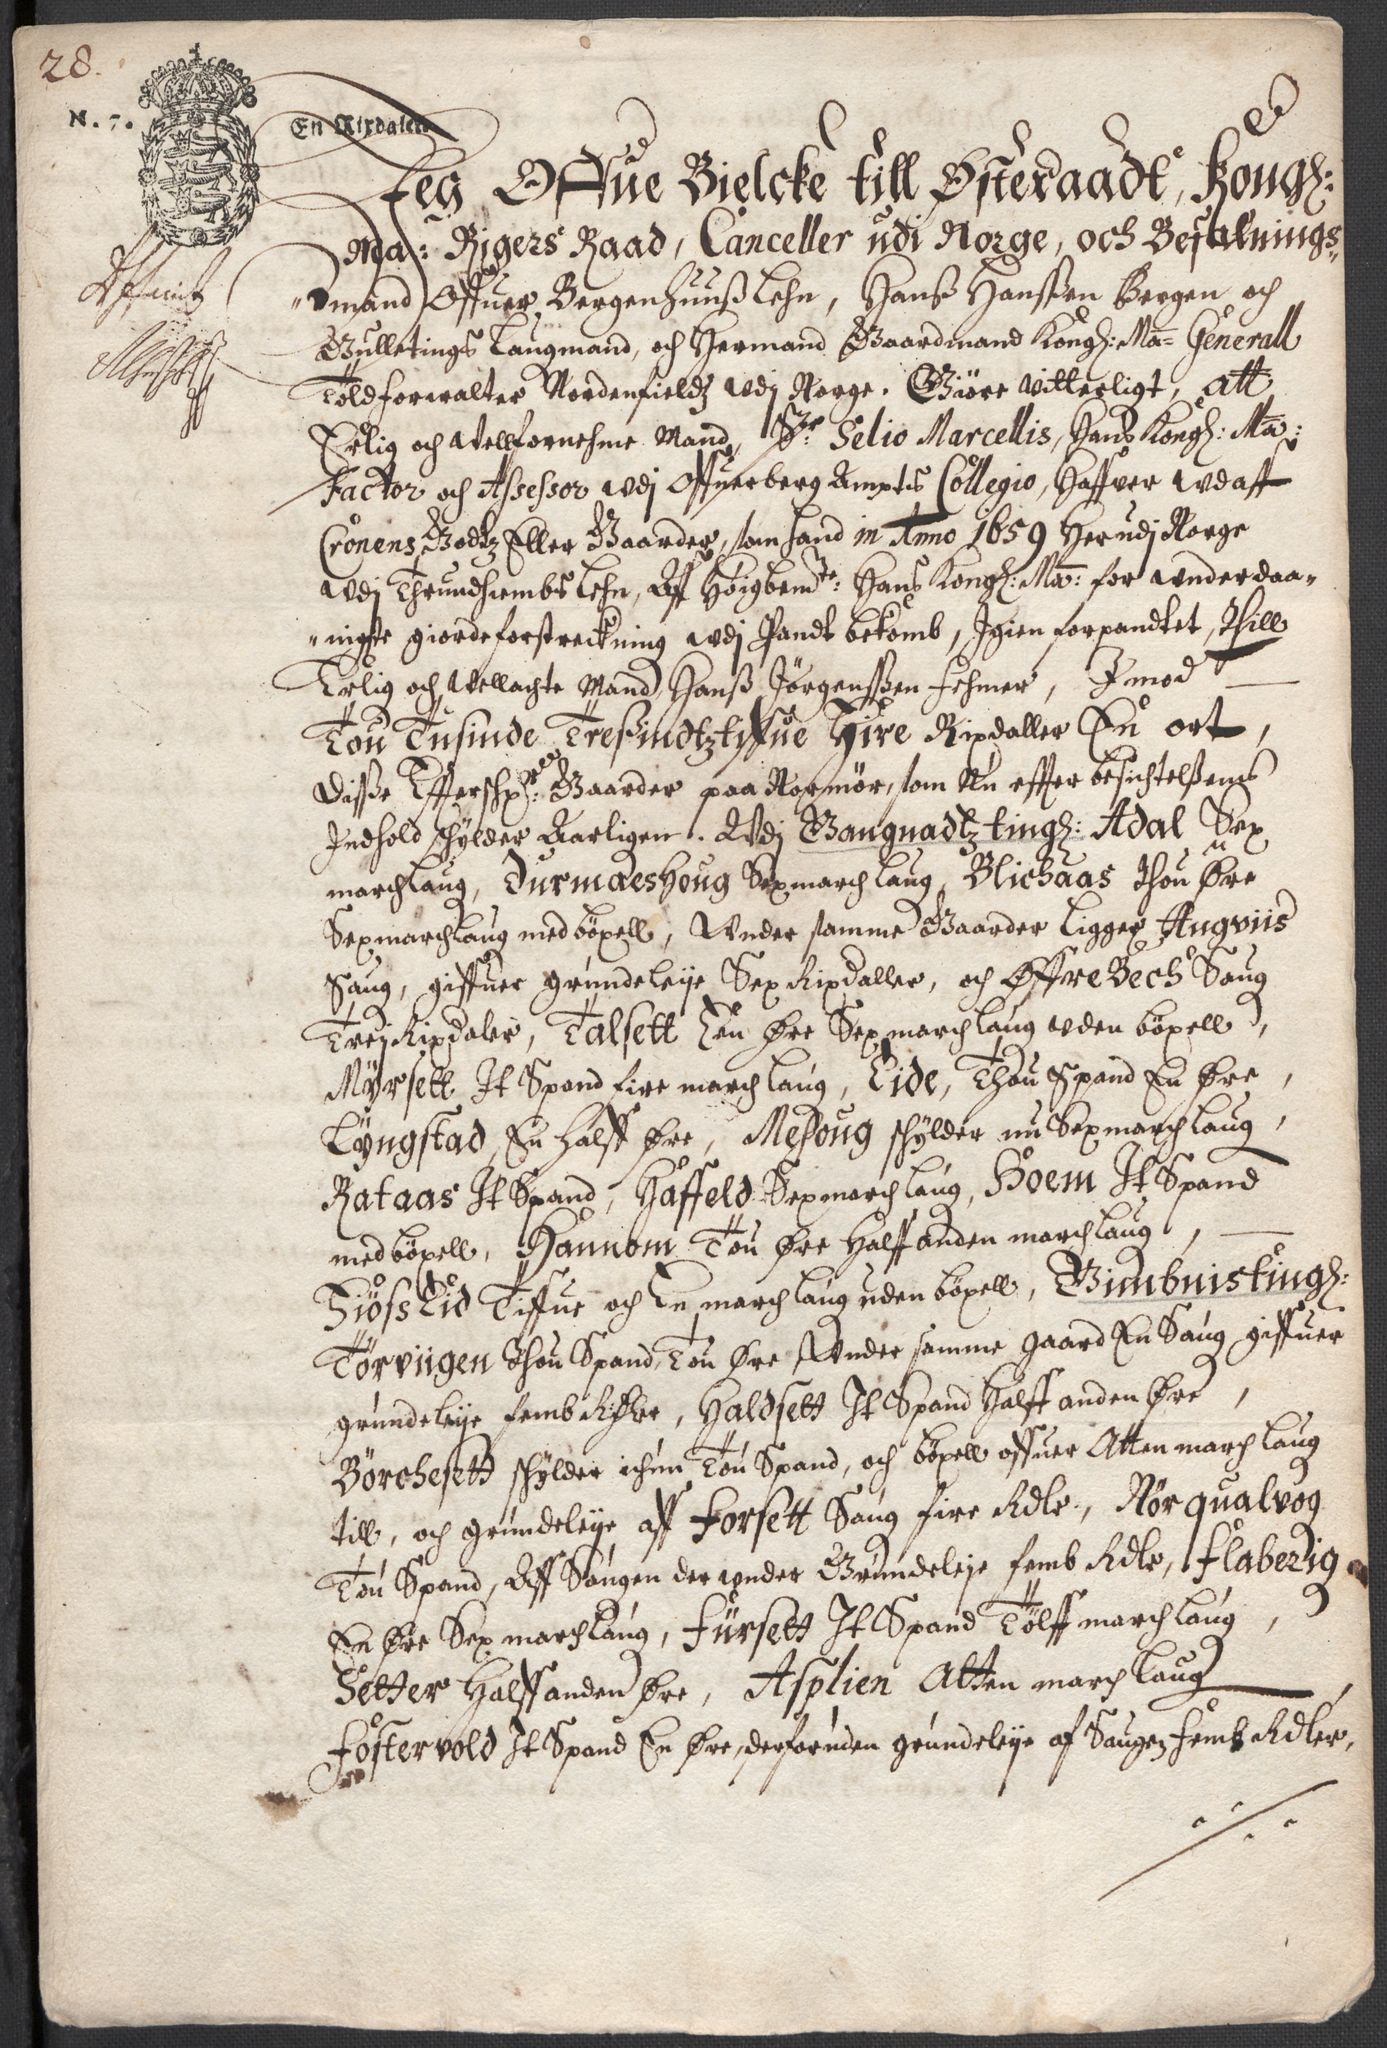 28.
N. 7.
En Rixdaler
Jeg Offue Bielcke till Østeraadt, Kongl:
Ma: Rigers Raad, Canceller udi Norge, och Befalnings-
mand Offuer Bergenhuuss Lehn, Hanss Hanssen Bergen och
Gulletings Laugmand, och Hermand Gaardmand Kongl: Ma: Generall
Toldforwalter Nordenfieldz udj Norge. Giøre Witterligt, att
Erlig och Wellfornehme Mand, Sr: Selio Marcellis, Hans Kongl: Ma:
Factor och Assessor udj Offuerberg Amptis Collegio, Haffver udaff
Cronens Godtz Eller Gaarder, som hand in Anno 1659 Her udj Norge
Udj Thrundhiembs Lehn, Aff Høigbemte: Hans Kongl: Ma: for underdaa-
nigste giorde forstreckning udj Pandt bekomb, Igien forpandtet, Thill
Erlig och Wellachte Mand, Hanss Jørgenssen Fehmer, Imod
Tou Tusinde Tresindtztiffue Fire Rixdaller En ort,
Disse Effterschr: Gaarder paa Normør, som Nu effter besichtelssens
Indhold schylder Aarligen. Udj Gangnadtz tingl: Adal Sex
marchlaug, Durmaeshoug Sex march laug, Blichaas Thou Øre
Sex marchlaug med böxell, Under samme Gaarder Ligger Angviis
Saug, giffuer grundeleye Sex Rixdaller, och Øffre Bech Saug
Trej Rixdaler, Talsett Een Øre Sex march laug uden böxell,
Myrsett It Spand fire march laug, Eide, Thou Spand En Øre,
Lyngstad En halff Øre, Mehoug schylder nu Sex march laug,
Rataas It Spand, Haffeld Sex march laug, Hoem It Spand
med böxell, Hannom Tou Øre Halff anden march laug,
Siöss Eid Tiffue och En march laug uden böxell, Gimbnistingl:
Törviigen Thou Spand, Tou Øre, Under samme gaard En Saug giffuer
grundeleye femb Rixdlr, Haldsett It Spand Halff anden Øre,
Börchesett schylder ichun Tou Spand, och böxell offuer Atten march laug
till, och grundeleye aff Forsett Saug fire Rdlr, Nörqualvog
Tou Spand, Aff Saugen der under Grundeleje femb Rdlr, Flabersig
En Øre Sex march laug, Fürsett It Spand Tölff march laug,
Setter Halff anden Øre, Asplien Atten march laug,
Fostervold It Spand En Øre, derforuden grundeleye af Saugen Femb Rdler,